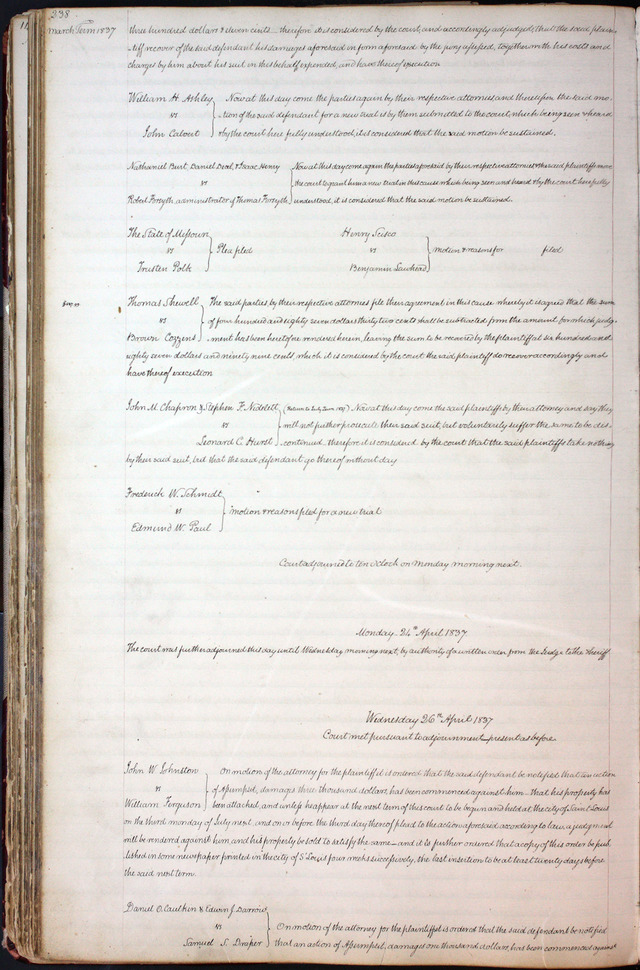 238
March Term 1837
three hundred dollars & eleven cents — therefore it is considered by the court, and accordingly adjudged, that the said plain-
tiff recover of the said defendant his damages aforesaid in form aforesaid by the jury assessed, together with his costs and
charges by him about his suit in this behalf expended, and have thereof execution
William H. Ashley } Now at this day come the parties again by their respective attornies and thereupon the said mo-
vs } tion of the said defendant for a new trial is by them submitted to the court, which being seen & heard
John Calvert } & by the court here fully understood, it is considered that the said motion be sustained.
Nathaniel Burt, Daniel Deal, & Isaac Henry } Now at this day come again the parties aforesaid by their respective attornies & the said plaintiffs move
vs } the court to grant him a new trial in this cause which being seen and heard & by the court here fully
Robert Forsyth, administrator of Thomas Forsyth } understood, it is considered that the said motion be sustained.
The State of Missouri } Henry Scisco }
vs } Plea filed vs } motion & reasons for filed
Trusten Polk } Benjamin Lawhead }
Thomas Shewell } The said parties by their respective attornies file their agreement in this cause whereby it is agreed that the sum
vs } of four hundred and eighty seven dollars thirty two cents shall be subtracted from the amount for which judg-
Brown Cozzens } ment has been heretofore rendered herein, leaving the sum to be recovered by the plaintiff at six hundred and
eighty seven dollars and ninety nine cents which it is considered by the court the said plaintiff do recover accordingly and
have thereof execution
John M. Chapron & Stephen F. Nidelett } (Return to July Term 1837) Now at this day come the said plaintiffs by their attorney and say they
vs } will not further prosecute their said suit but voluntarily suffer the same to be dis-
Leonard C. Hurst } continued. therefore it is considered by the court that the said plaintiffs take nothing
by their said suit, but that the said defendant go thereof without day
Frederick W. Schmidt }
vs } motion & reasons filed for a new trial
Edmund W. Paul }
Court adjourned to ten o'clock on Monday morning next.
Monday 24th April 1837
The court was further adjourned this day until Wednesday morning next, by authority of a written order from the Judge to the Sheriff
Wednesday 26th April 1837
Court met pursuant to adjournment — present as before
John W. Johnston } On motion of the attorney for the plaintiff it is ordered that the said defendant be notified that an action
vs } of Assumpsit, damages three thousand dollars, has been commenced against him — that his property has
William Ferguson } been attached, and unless he appear at the next term of this court to be begun and held at the city of Saint Louis
on the third monday of July next, and on or before the third day thereof plead to the action aforesaid according to law, a judgment
will be rendered against him, and his property be sold to satisfy the same — and it is further ordered that a copy of this order be pub-
lished in some newspaper printed in the city of St Louis four weeks successively, the last insertion to be at least twenty days before
the said next term.
Daniel O. Caulkin & Edwin J. Darrow }
vs } On motion of the attorney for the plaintiffs it is ordered that the said defendant be notified
Samuel S. Draper } that an action of Assumpsit, damages one thousand dollars, has been commenced against